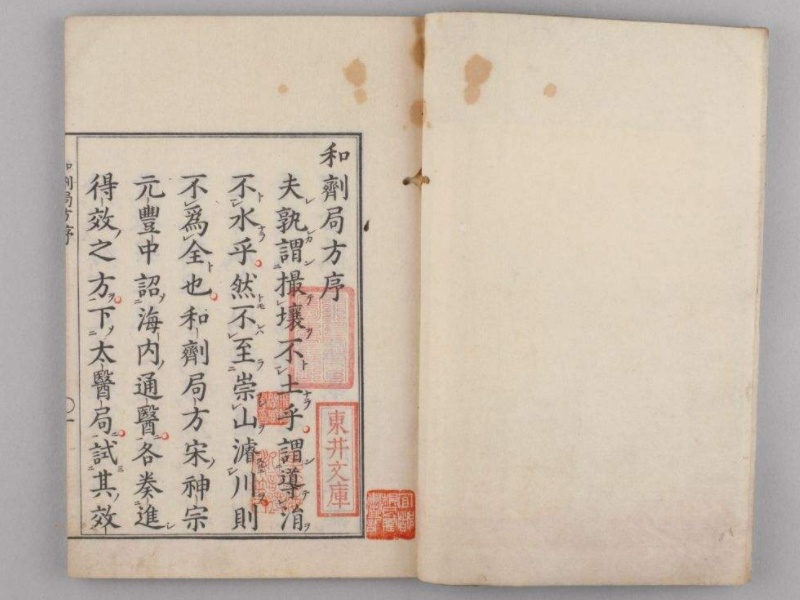 和劑局方序
夫孰謂撮壤不土乎謂導涓
不水乎然不至崇山濬川則
不爲全也和劑局方宋神宗
元豐中詔海内通醫各奏進
得效之方下太醫局試其效
和劑局方序
東井文庫